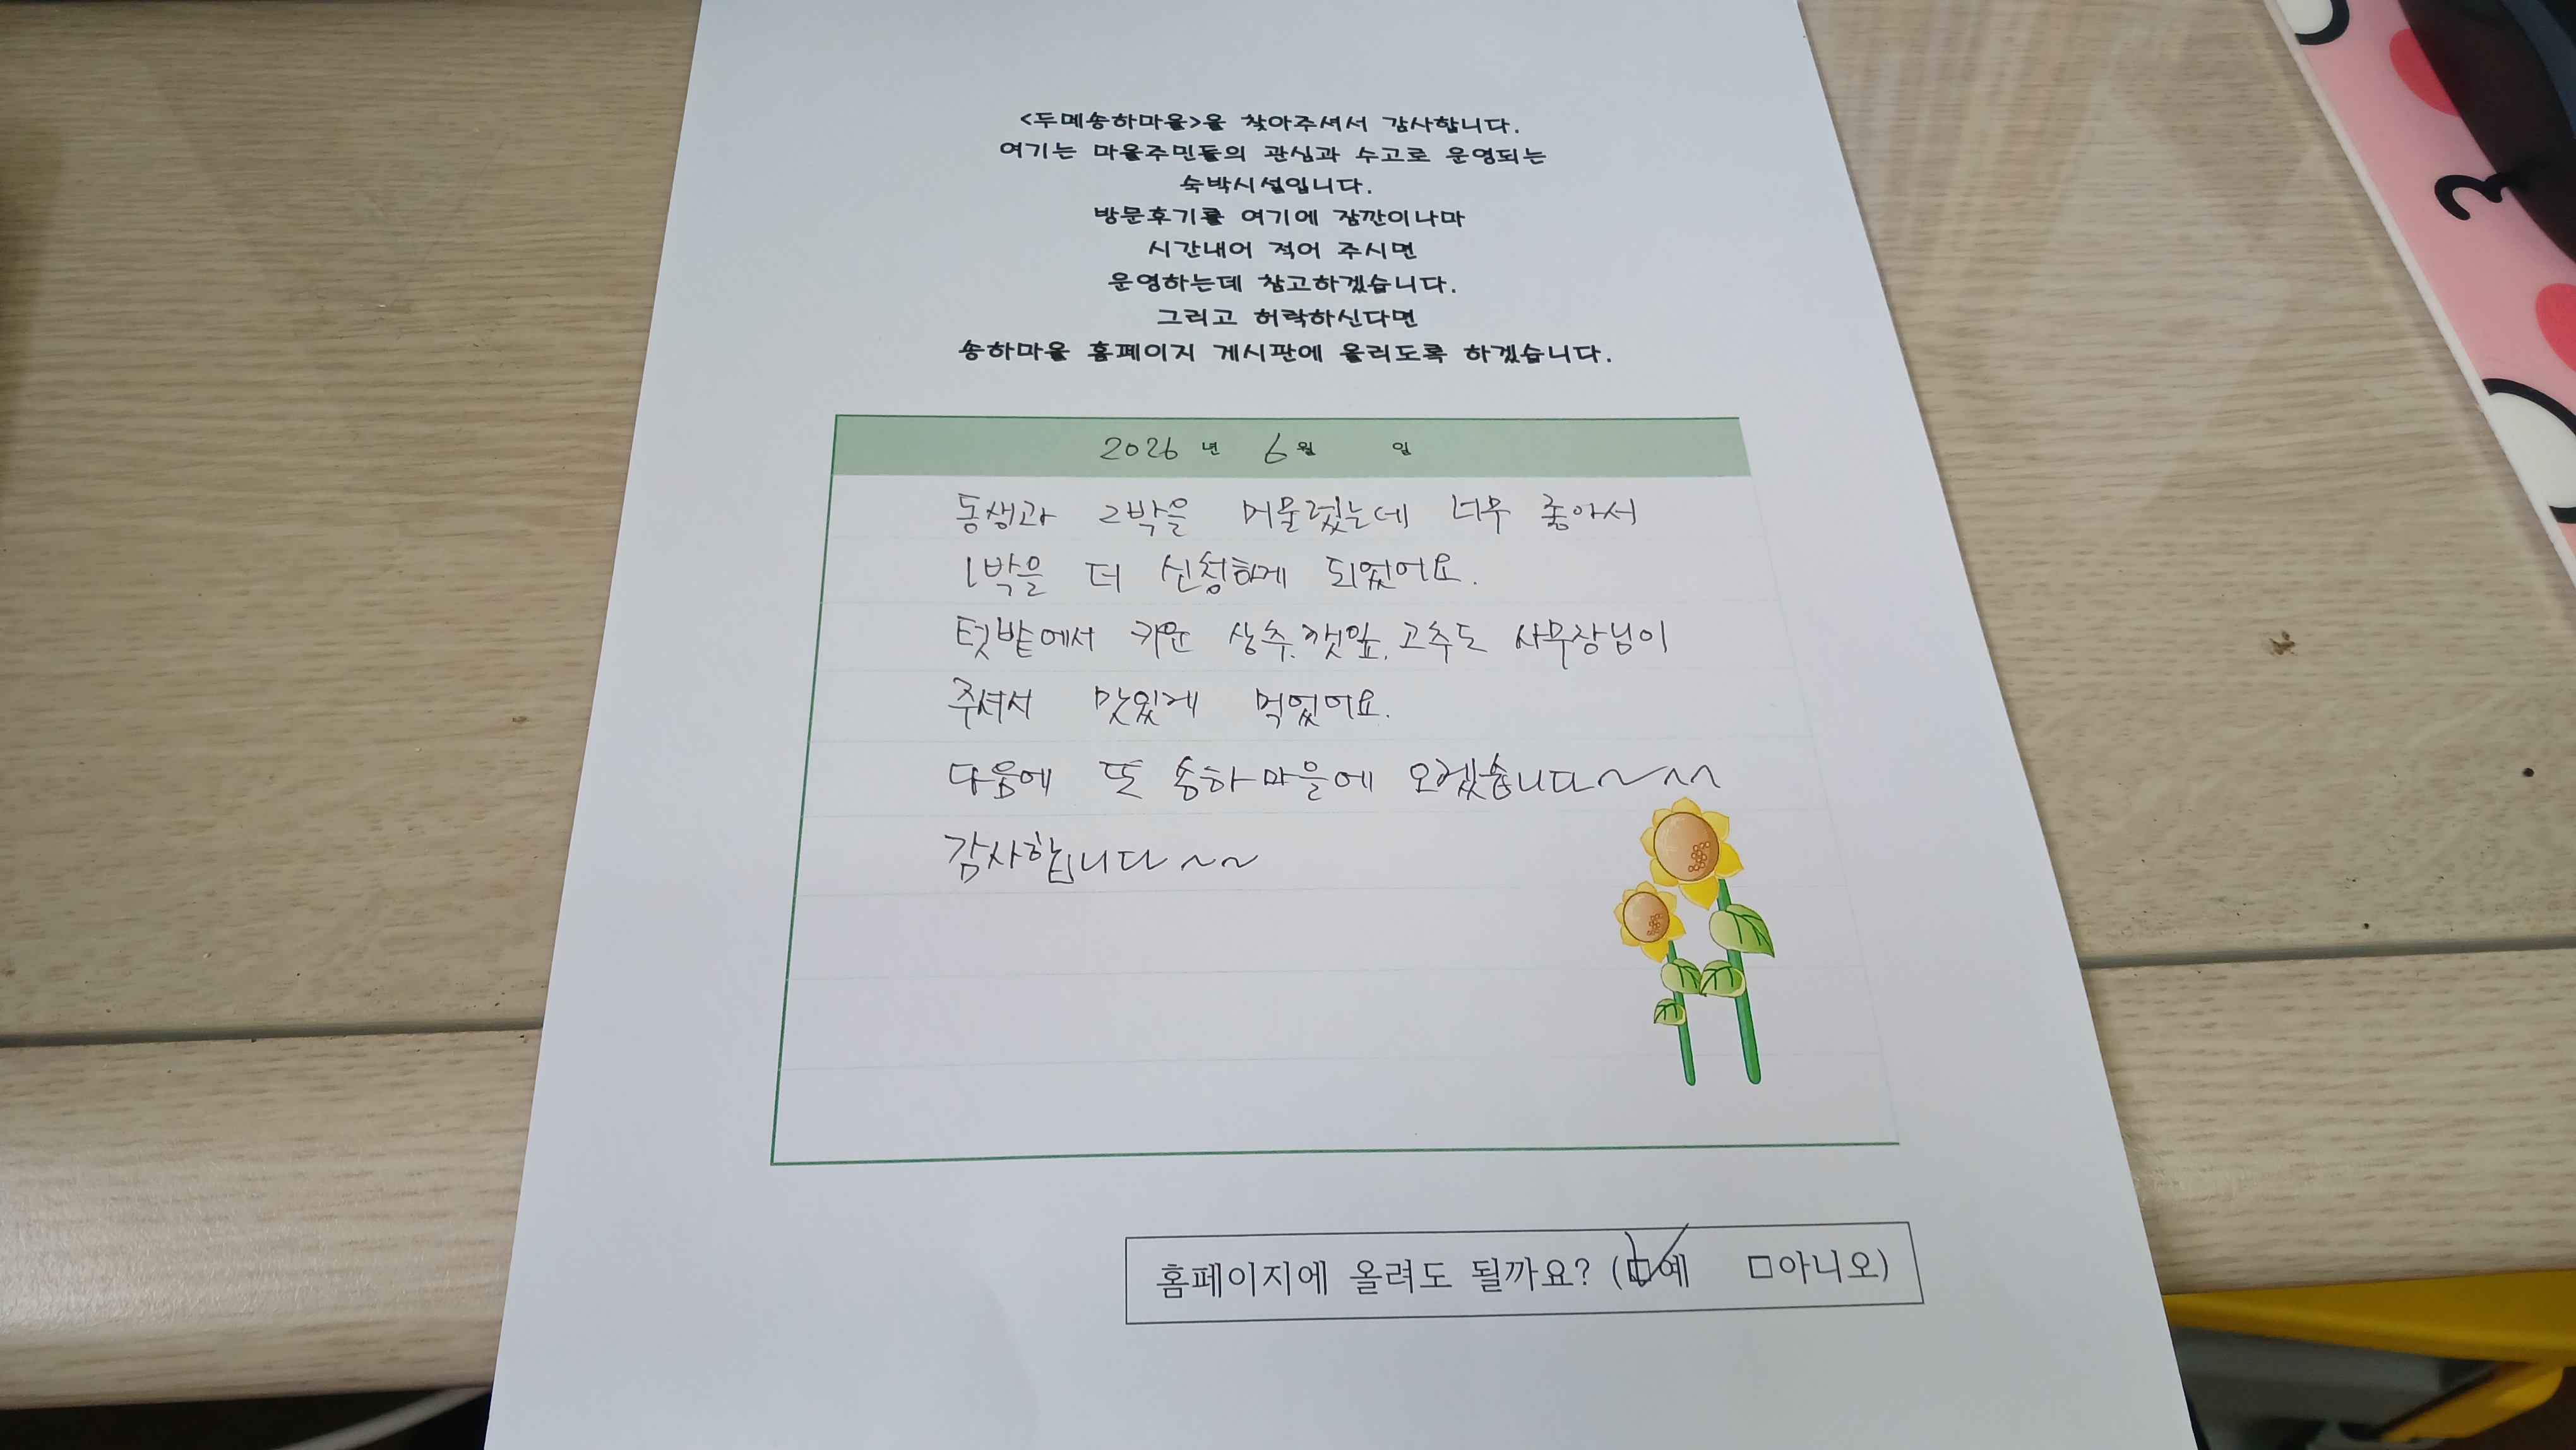 <두메송하마을>을 찾아주셔서 감사합니다.
여기는 마을주민들의 관심과 수고로 운영되는
숙박시설입니다.
방문후기를 여기에 잠깐이나마
시간내어 적어 주시면
운영하는데 참고하겠습니다.
그리고 허락하신다면
송하마을 홈페이지 게시판에 올리도록 하겠습니다.
2026 년 6월 일
동생과 2박을 머물렀는데 너무 좋아서
1박을 더 신청하게 되었어요.
텃밭에서 키운 상추.깻잎.고추도 사무장님이
주셔서 맛있게 먹었어요.
다음에 또 송하마을에 오겠습니다~^^
감사합니다~~
홈페이지에 올려도 될까요? (☑예 □아니오)